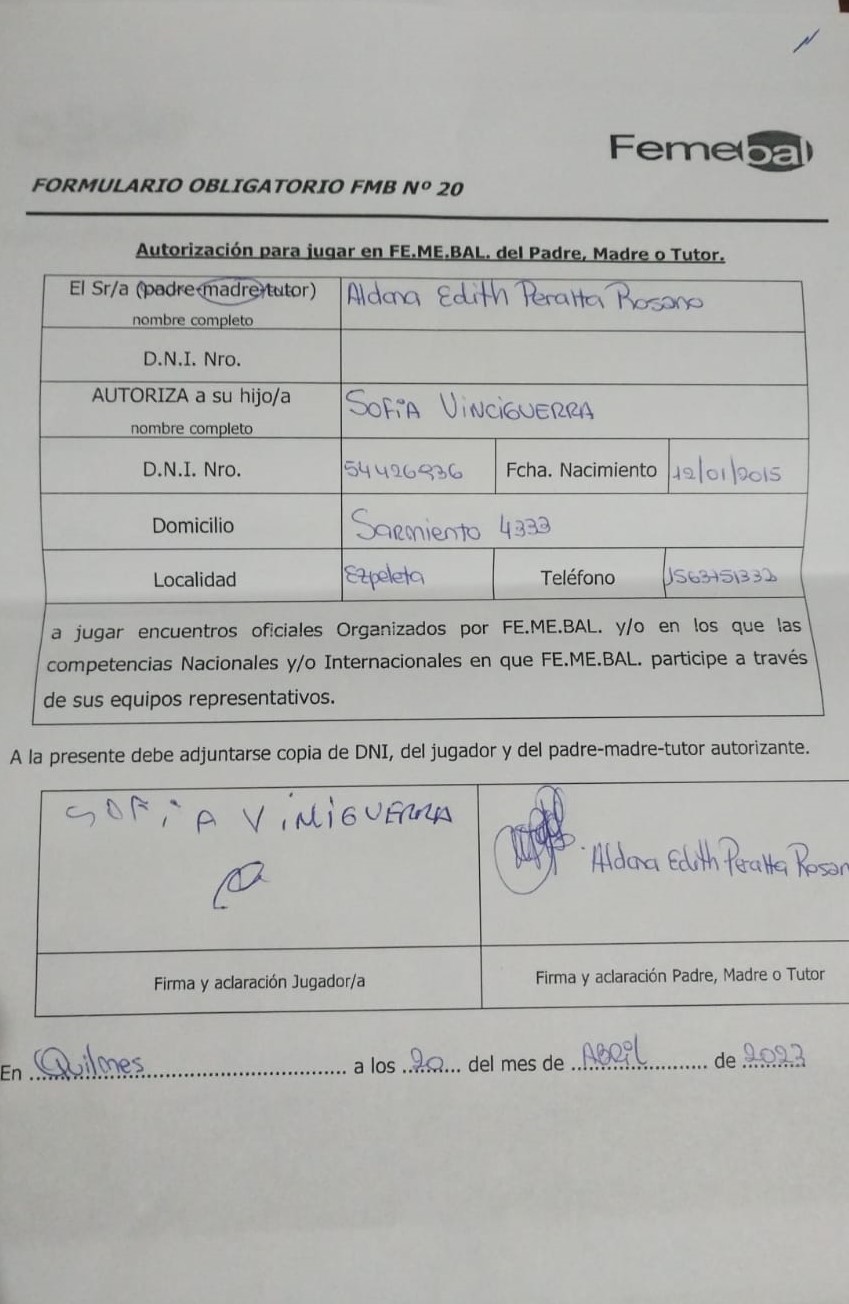 Femebal
FORMULARIO OBLIGATORIO FMB Nº 20
Autorización para jugar en FE.ME.BAL. del Padre, Madre o Tutor.
El Sr/a (padre-madre-tutor) Aldana Edith Peralta Rosano
nombre completo
D.N.I. Nro.
AUTORIZA a su hijo/a SOFIA VINCIGUERRA
nombre completo
D.N.I. Nro. 54426936 Fcha. Nacimiento 12/01/2015
Domicilio Sarmiento 4333
Localidad Ezpeleta Teléfono 1563751332
a jugar encuentros oficiales Organizados por FE.ME.BAL. y/o en los que las
competencias Nacionales y/o Internacionales en que FE.ME.BAL. participe a través
de sus equipos representativos.
A la presente debe adjuntarse copia de DNI, del jugador y del padre-madre-tutor autorizante.
SOFIA VINIGUERRA
Aldana Edith Peralta Rosan
Firma y aclaración Jugador/a Firma y aclaración Padre, Madre o Tutor
En Quilmes a los 20 del mes de ABRIL de 2023